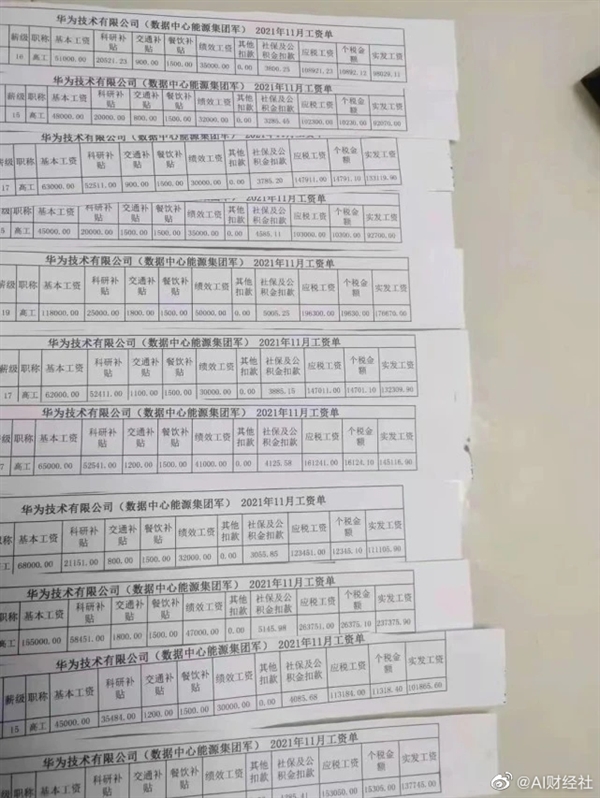 华为技术有限公司（数据中心能源集团军） 2021年11月工资单
薪级 职称 基本工资 科研补贴 交通补贴 餐饮补贴 绩效工资 其他扣款 社保及公积金扣款 应税工资 个税金额 实发工资
16 高工 51000.00 20521.23 900.00 1500.00 35000.00 0.00
华为技术有限公司（数据中心能源集团军） 2021年11月工资单
薪级 职称 基本工资 科研补贴 交通补贴 餐饮补贴 绩效工资 其他扣款 社保及公积金扣款 应税工资 个税金额 实发工资
15 高工 48000.00 20000.00 800.00 1500.00 32000.00 0.00 3285.45 102300.00 10230.00 92070.00
薪级 职称 基本工资 科研补贴 交通补贴 餐饮补贴 绩效工资 其他扣款 社保及公积金扣款 应税工资 个税金额 实发工资
17 高工 63000.00 52511.00 900.00 1500.00 30000.00 0.00 3785.20 147911.00 14791.10 133119.90
级 职称 基本工资 科研补贴 交通补贴 餐饮补贴 绩效工资 其他扣款 社保及公积金扣款 应税工资 个税金额 实发工资
5 高工 45000.00 20000.00 1500.00 1500.00 35000.00 0.00 4585.11 103000.00 10300.00 92700.00
华为技术有限公司（数据中心能源集团军） 2021年11月工资单
薪级 职称 基本工资 科研补贴 交通补贴 餐饮补贴 绩效工资 其他扣款 社保及公积金扣款 应税工资 个税金额 实发工资
19 高工 118000.00 25000.00 1800.00 1500.00 50000.00 0.00 5005.25 196300.00 19630.00 176670.00
华为技术有限公司（数据中心能源集团军） 2021年11月工资单
薪级 职称 基本工资 科研补贴 交通补贴 餐饮补贴 绩效工资 其他扣款 社保及公积金扣款 应税工资 个税金额 实发工资
17 高工 62000.00 52411.00 1100.00 1500.00 30000.00 0.00 3885.15 147011.00 14701.10 132309.90
华为技术有限公司（数据中心能源集团军） 2021年11月工资单
级 职称 基本工资 科研补贴 交通补贴 餐饮补贴 绩效工资 其他扣款 社保及公积金扣款 应税工资 个税金额 实发工资
7 高工 65000.00 52541.00 1200.00 1500.00 41000.00 0.00 4125.58 161241.00 16124.10 145116.90
华为技术有限公司（数据中心能源集团军） 2021年11月工资单
基本工资 科研补贴 交通补贴 餐饮补贴 绩效工资 其他扣款 社保及公积金扣款 应税工资 个税金额 实发工资
工 68000.00 21151.00 800.00 1500.00 32000.00 0.00 3055.85 123451.00 12345.10 111105.90
华为技术有限公司（数据中心能源集团军） 2021年11月工资单
职称 基本工资 科研补贴 交通补贴 餐饮补贴 绩效工资 其他扣款 社保及公积金扣款 应税工资 个税金额 实发工资
高工 155000.00 58451.00 1800.00 1500.00 47000.00 0.00 5145.98 263751.00 26375.10 237375.90
华为技术有限公司（数据中心能源集团军） 2021年11月工资单
薪级 职称 基本工资 科研补贴 交通补贴 餐饮补贴 绩效工资 其他扣款 社保及公积金扣款 应税工资 个税金额 实发工资
15 高工 45000.00 35484.00 1200.00 1500.00 30000.00 0.00 4085.68 113184.00 11318.40 101865.60
华为技术有限公司（数据中心能源集团军） 2021年11月工资单
基本工资 科研补贴 交通补贴 餐饮补贴 绩效工资 其他扣款 社保及公积金扣款 应税工资 个税金额 实发工资
153050.00 15305.00 137745.00
@AI财经社